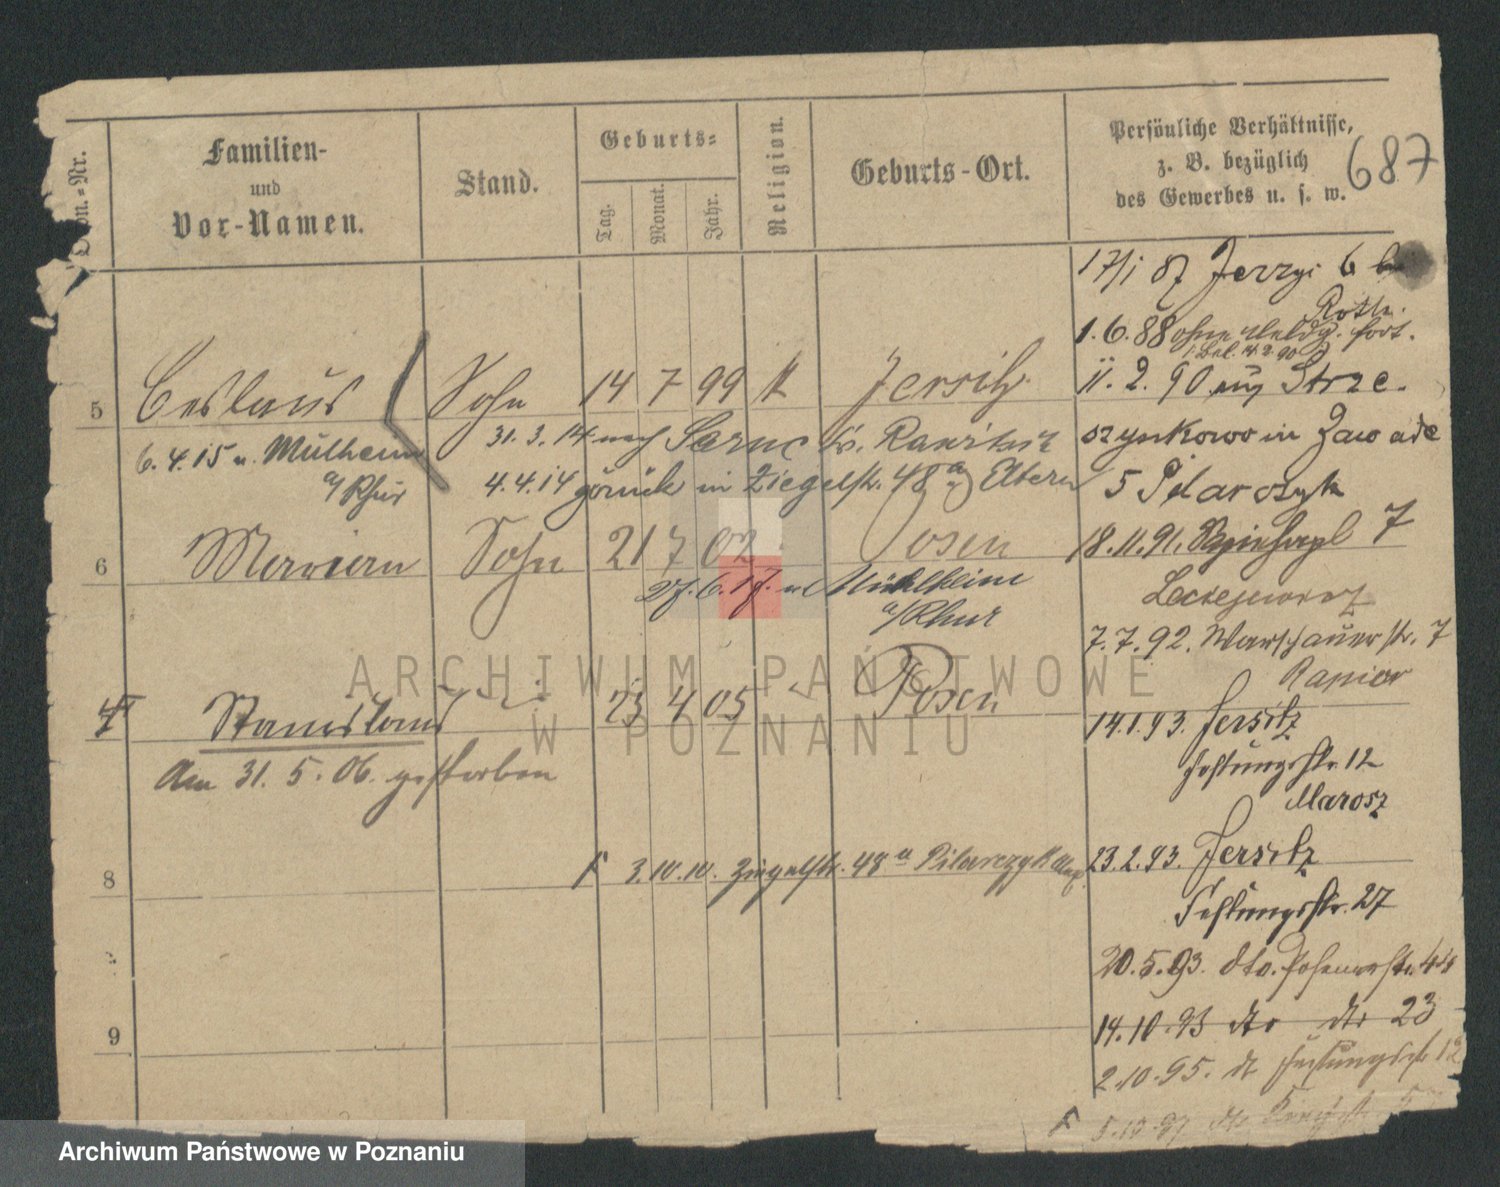 Familien-
und
Vor-Namen.
Stand.
Geburts=
Tag.
Monat.
Jahr.
Religion.
Geburts-Ort.
Persönliche Verhältnisse,
z. B. bezüglich
des Gewerbes u. s. w.
687
17/1 87 Jerzyi 6 bei
Roth.
1.6.88 ohne Meldg. fort.
11. 2. 90 aus Strze-
5 Ceslaus Sohn 14 7 99 K Jersitz
szynkowo in Zawade
6.4.15 n. Mülheim
a/Rhur
31. 3. 14 nach Sarne
4.4.14 zurück in Ziegelstr. 48a Eltern
5 Pilarczyk
6 Marian Sohn 21 7 02 Posen
18.11.91. 7
27. 6. 17. n Mühlheim
a/Rhur
7. 7. 92. Warschauerstr. 7
Rapior
7 Stanislaus 23 4 05 Posen
14.1.93. Jersitz
Festungsstr. 12
Marosz
Am 31. 5. 06. gestorben
8
3.10.10. Ziegelstr. 48 a Pilarczyk
23.2.93. Jersitz
Festungsstr. 27
20.5.93. dto. Posenerstr. 44
9
14.10.93 dto dto 23
2.10.95. dt Festungsstr 12
ARCHIWUM PAŃSTWOWE
W POZNANIU
Archiwum Państwowe w Poznaniu